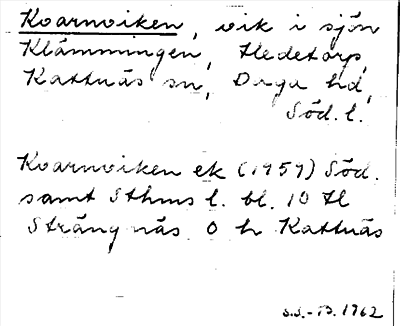 Kvarnviken, vik i sjön
Klämmingen, Hedetorp,
Kattnäs sn, Daga hd,
Söd. l.
Kvarnviken ek (1959) Söd.
samt Sthms l. bl. 10 H
Strängnäs O h Kattnäs
S.S.-B. 1962